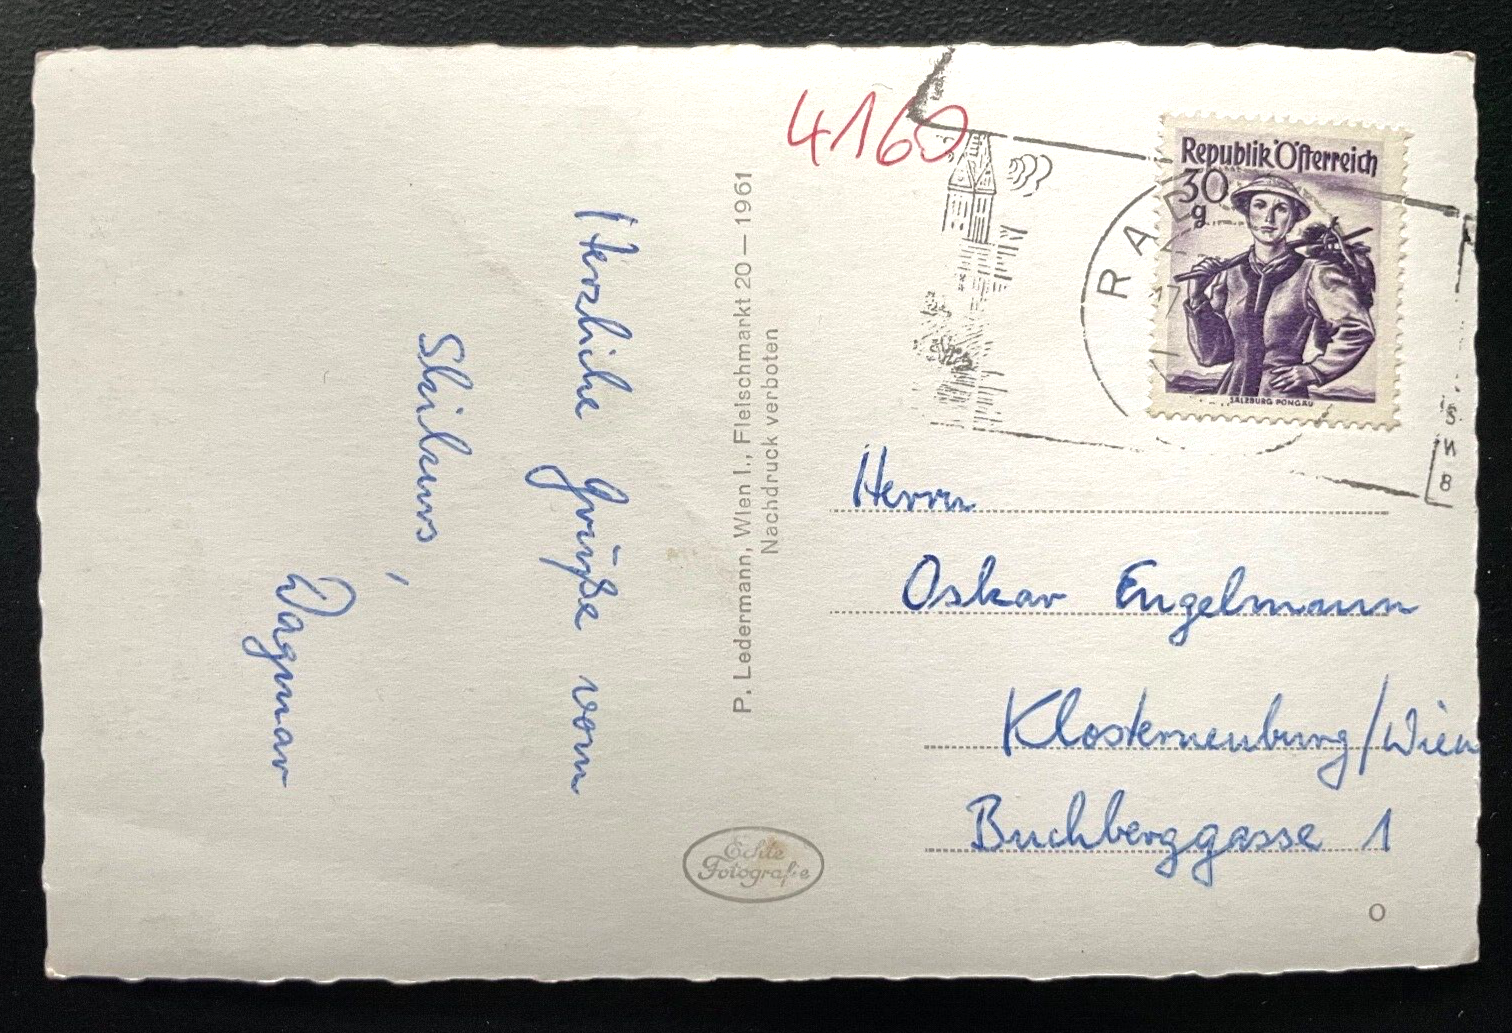 Herzliche Grüße vom
Skikurs,
Dagmar
P. Ledermann, Wien I., Fleischmarkt 20 — 1961
Nachdruck verboten
Echte
Fotografie
4160
Republik Österreich
30
g
SALZBURG PONGAU
RA
Herrn
Oskar Engelmann
Klosterneuburg/Wien
Buchberggasse 1
O